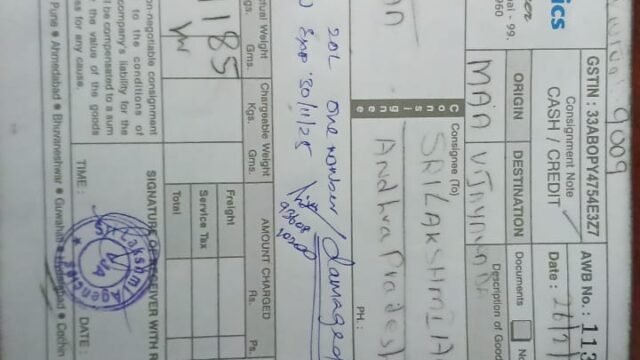 ics
GSTIN : 33ABOPY4754E3Z7
AWB No. : 113
Consignment Note
CASH / CREDIT
Date : 26/
ai - 99.
060
ORIGIN
DESTINATION
Documents
MAA
VIJAYWADA
Description of Good
Consignee
Consignee (To)
SRI LAKSHMI A
Andhra Pradesh
PH. :
20L one number / damaged
Exp '30/11/25
93608
Actual Weight
Chargeable Weight
AMOUNT CHARGED
Kgs.
Gms.
Kgs.
Gms.
Rs.
Ps.
185
Freight
Service Tax
Total
non-negotiable consignment
to the conditions of
company's liability for the
be compensated to a sum
the value of the goods
es for any cause.
SIGNATURE OF RECEIVER WITH R
Lakshmi Agencies
TIME :
DATE :
Pune ● Ahmedabad ● Bhuvaneshwar ● Guwahati ● Hyderabad ● Cochin